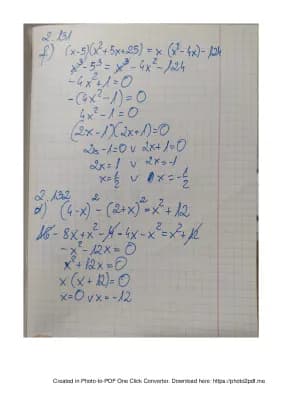 2.131
f) (x-5)(x²+5x+25) = x·(x²-4x)-124
x³-5³ = x³-4x²-124
-4x²+1=0
-(4x²-1)=0
4x²-1=0
(2x-1)(2x+1)=0
2x-1=0 v 2x+1=0
2x=1 v 2x=-1
x=1/2 v x=-1/2
2.132
d) (4-x)²-(2+x)²=x²+12
16-8x+x²-4-4x-x²=x²+12
-x²-12x=0
x²+12x=0
x(x+12)=0
x=0 v x=-12
Created in Photo-to-PDF One Click Converter. Download here: https://photo2pdf.me